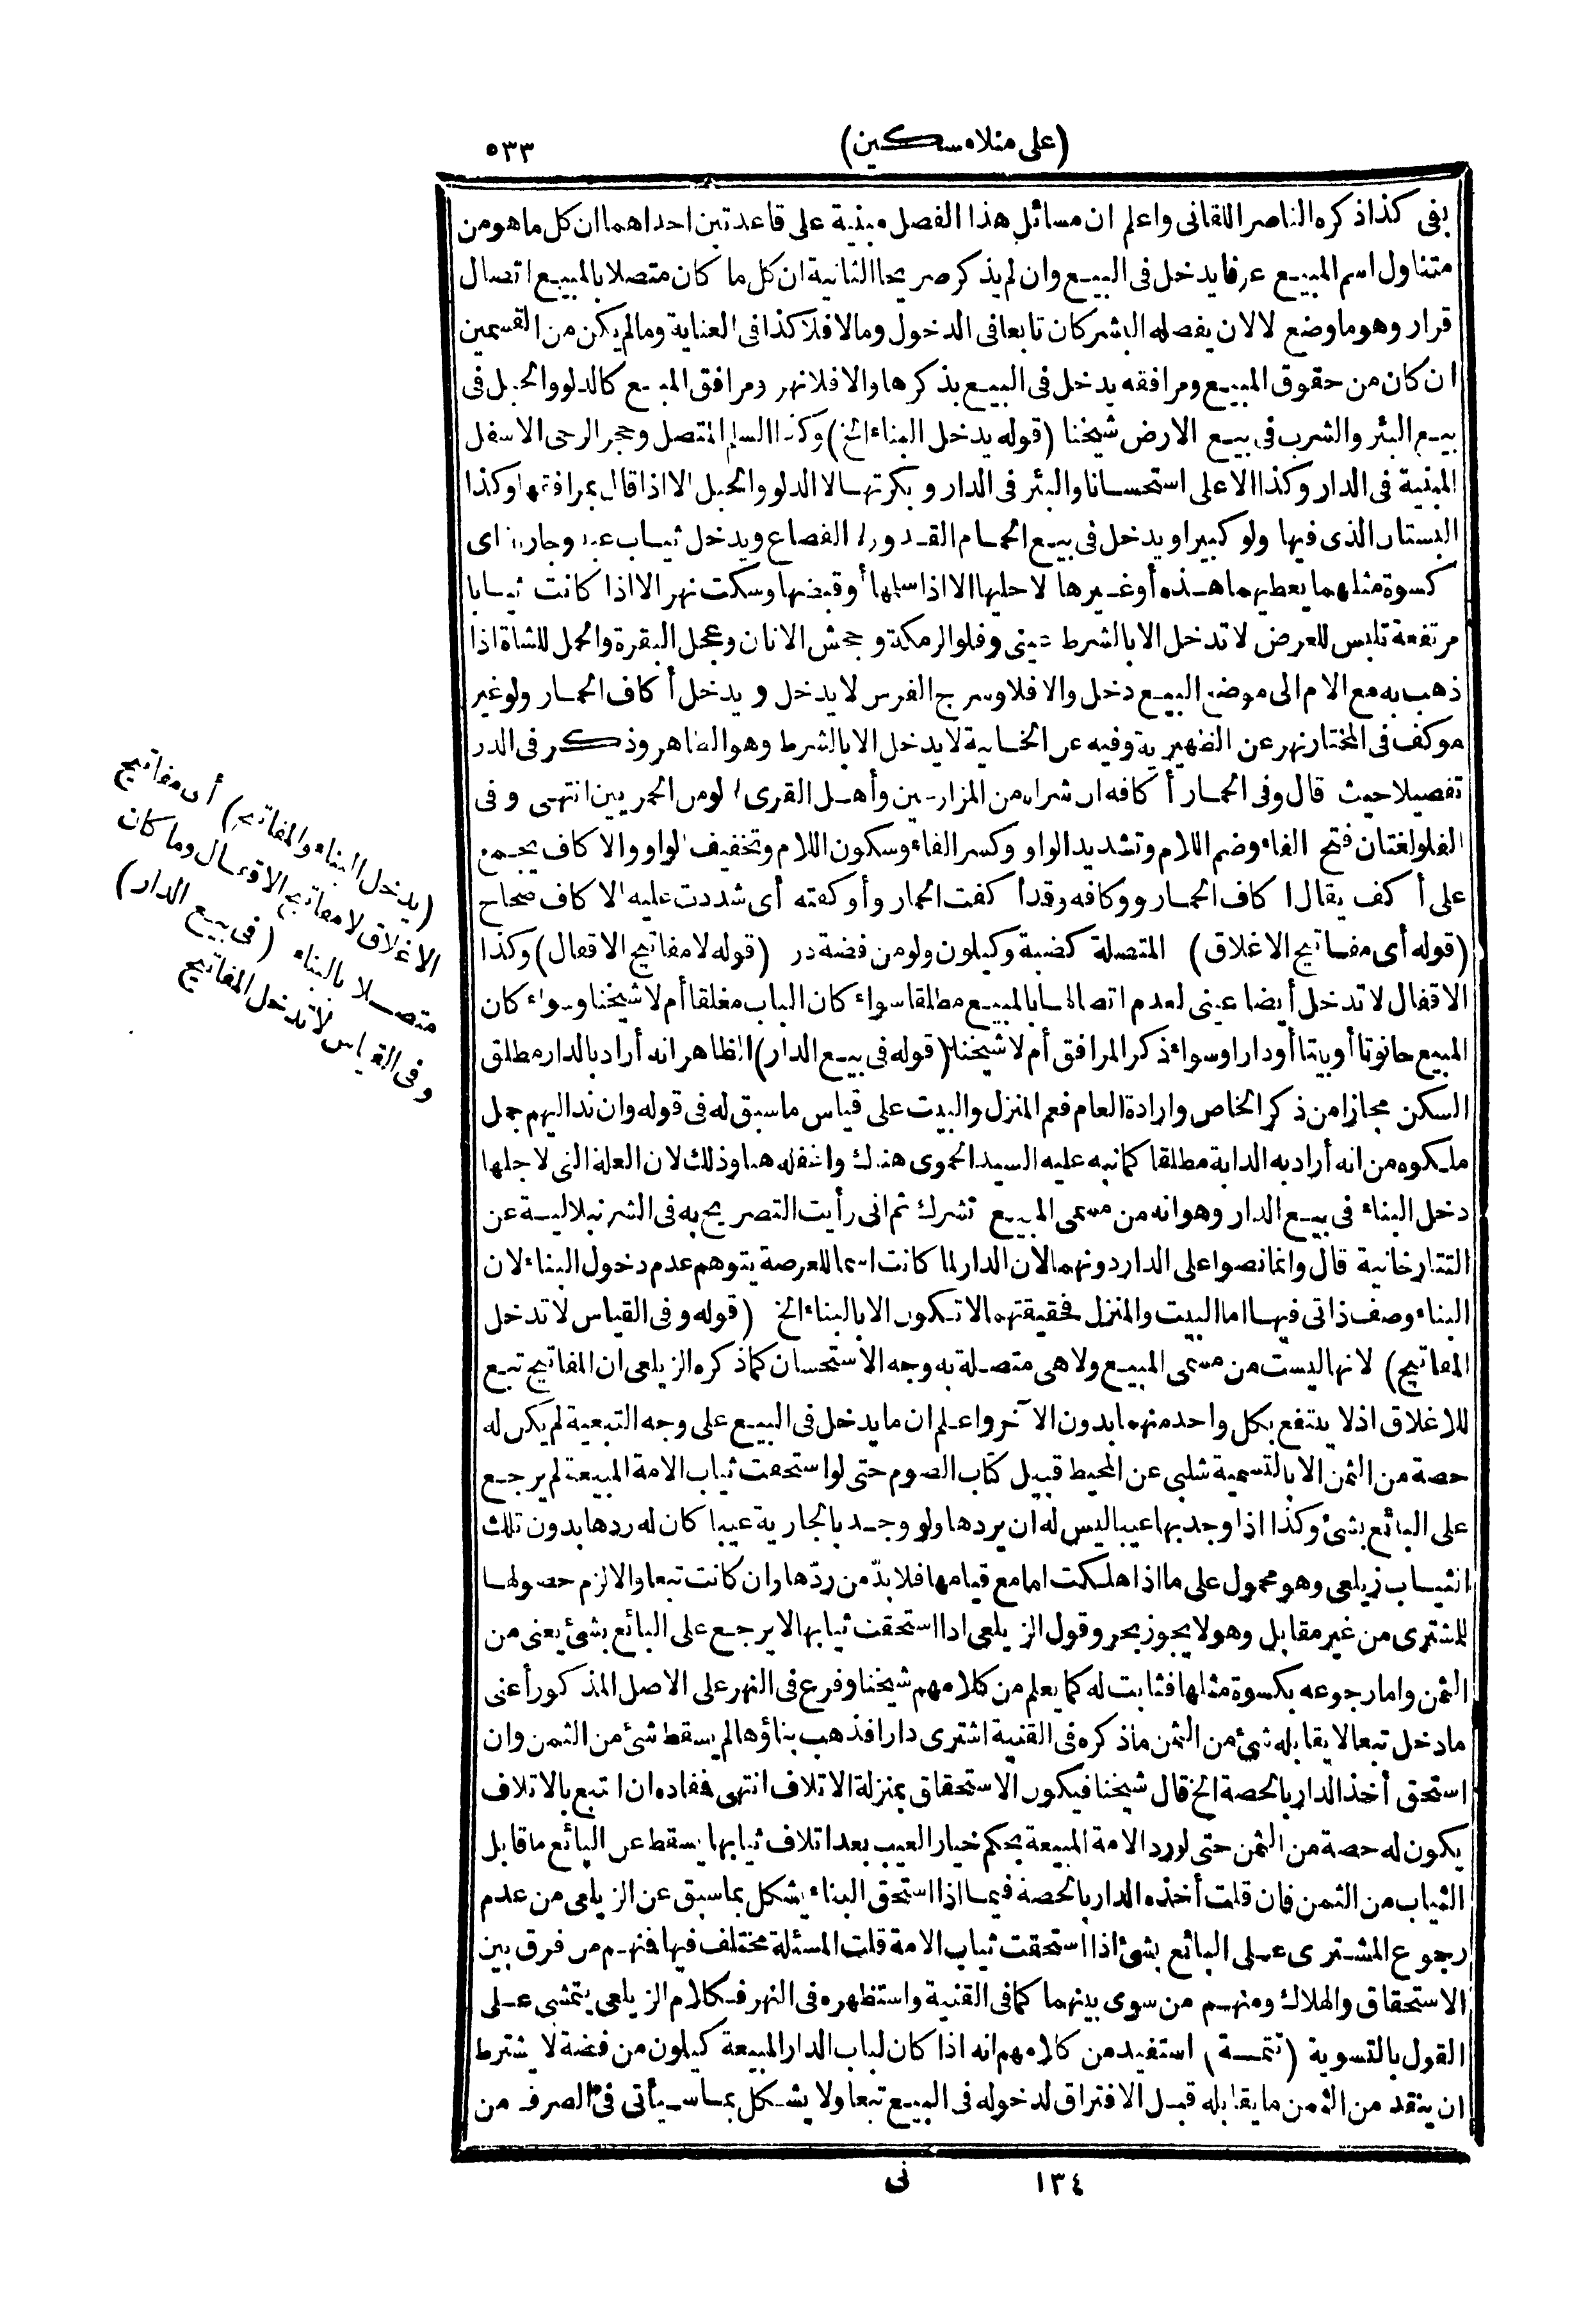 (على منلامسكين)
٥٣٣
بفى كذا ذكره الناصر اللقانى واعلم ان مسائل هذا الفصل مبنية على قاعدتين احداهما ان كل ما هو من
متناول اسم المبيع عرفا يدخل فى البيع وان لم يذكر صريحا الثانية ان كل ما كان متصلا بالمبيع اتصال
قرار وهو ما وضع لا لان يفصله البشر كان تابعا فى الدخول ومالا فلا كذا فى العناية ومالم يكن من القسمين
ان كان من حقوق المبيع ومرافقه يدخل فى البيع بذكرها والا فلا نهر ومرافق المبيع كالدلو والحبل فى
بيع البئر والشرب فى بيع الارض شيخنا (قوله يدخل البناء الخ) وكذا السلم المتصل وحجر الرحى الاسفل
المبنية فى الدار وكذا الاعلى استحسانا والبئر فى الدار وبكرتها لا الدلو والحبل الا اذا قال بمرافقها وكذا
البستان الذى فيها ولو كبيرا ويدخل فى بيع الحمام القدور لا القصاع ويدخل ثياب عبد وجارية اى
كسوة مثلهما يعطيهما هذه أو غيرها لا حليها الا اذا سلمها أو قبضها وسكت نهر الا اذا كانت ثيابا
مرتفعة تلبس للعرض لا تدخل الا بالشرط عينى وفلو الرمكة وجحش الاتان وعجل البقرة والحمل للشاة اذا
ذهب به مع الام الى موضع البيع دخل والا فلا وسرج الفرس لا يدخل ويدخل أكاف الحمار ولو غير
موكف فى المختار نهر عن الظهيرية وفيه عن الخانية لا يدخل الا بالشرط وهو الظاهر وذكر فى الدر
تفصيلا حيث قال وفى الحمار أكافه ان شراه من المزارعين وأهل القرى لا لو من الحمريين انتهى وفى
الفلو لغتان فتح الفاء وضم اللام وتشديد الواو وكسر الفاء وسكون اللام وتخفيف الواو والاكاف يجمع
على أكف يقال اكاف الحمار ووكافه وقد أكفت الحمار وأوكفته أى شددت عليه الاكاف صحاح
(قوله أى مفاتيح الاغلاق) المتصلة كضبة وكيلون ولو من فضة در (قوله لا مفاتيح الاقفال) وكذا
الاقفال لا تدخل أيضا عينى لعدم اتصالها بالمبيع مطلقا سواء كان الباب مغلقا أم لا شيخنا وسواء كان
المبيع حانوتا أو بيتا أو دارا وسواء ذكر المرافق أم لا شيخنا (قوله فى بيع الدار) الظاهر انه أراد بالدار مطلق
السكن مجازا من ذكر الخاص وارادة العام فعم المنزل والبيت على قياس ما سبق له فى قوله وان ند اليهم جمل
ملكوه من انه أراد به الدابة مطلقا كما نبه عليه السيد الحموى هناك واغفله هنا وذلك لان العلة التى لاجلها
دخل البناء فى بيع الدار وهو انه من مسمى المبيع تشرك ثم انى رأيت التصريح به فى الشرنبلالية عن
التتارخانية قال وانما نصوا على الدار دونهما لان الدار لما كانت اسما للعرصة يتوهم عدم دخول البناء لان
البناء وصف ذاتى فيها اما البيت والمنزل فحقيقتهما لا تكون الا بالبناء الخ (قوله وفى القياس لا تدخل
المفاتيح) لانها ليست من مسمى المبيع ولا هى متصلة به وجه الاستحسان كما ذكره الزيلعى ان المفاتيح تبع
للاغلاق اذ لا ينتفع بكل واحد منهما بدون الآخر واعلم ان ما يدخل فى البيع على وجه التبعية لم يكن له
حصة من الثمن الا بالتسمية شلبى عن المحيط قبيل كتاب الصوم حتى لو استحقت ثياب الامة المبيعة لم يرجع
على البائع بشئ وكذا اذا وجد بها عيبا ليس له ان يردها ولو وجد بالجارية عيبا كان له ردها بدون تلك
الثياب زيلعى وهو محمول على ما اذا هلكت اما مع قيامها فلا بدّ من ردّها وان كانت تبعا والا لزم حصولها
للمشترى من غير مقابل وهو لا يجوز بحر وقول الزيلعى اذا استحقت ثيابها لا يرجع على البائع بشئ يعنى من
الثمن واما رجوعه بكسوة مثلها فثابت له كما يعلم من كلامهم شيخنا وفرع فى النهر على الاصل المذكور أعنى
ما دخل تبعا لا يقابله شئ من الثمن ما ذكره فى القنية اشترى دارا فذهب بناؤها لم يسقط شئ من الثمن وان
استحق أخذ الدار بالحصة الخ قال شيخنا فيكون الاستحقاق بمنزلة الاتلاف انتهى فمفاده ان اتبع بالاتلاف
يكون له حصة من الثمن حتى لو رد الامة المبيعة بحكم خيار العيب بعد اتلاف ثيابها يسقط عن البائع ما قابل
الثياب من الثمن فان قلت أخذه الدار بالحصة فيما اذا استحق البناء يشكل بما سبق عن الزيلعى من عدم
رجوع المشترى على البائع بشئ اذا استحقت ثياب الامة قلت المسئلة مختلف فيها فمنهم من فرق بين
الاستحقاق والهلاك ومنهم من سوى بينهما كما فى القنية واستظهره فى النهر فكلام الزيلعى يتمشى على
القول بالتسوية (تتمة) استفيد من كلامهم انه اذا كان لباب الدار المبيعة كيلون من فضة لا يشترط
ان ينقد من الثمن ما يقابله قبل الافتراق لدخوله فى البيع تبعا ولا يشكل بما سيأتى فى الصرف من
(يدخل البناء والمفاتيح) أى مفاتيح
الاغلاق لا مفاتيح الاقفال وما كان
متصلا بالبناء (فى بيع الدار)
وفى القياس لا تدخل المفاتيح
١٣٤
نى